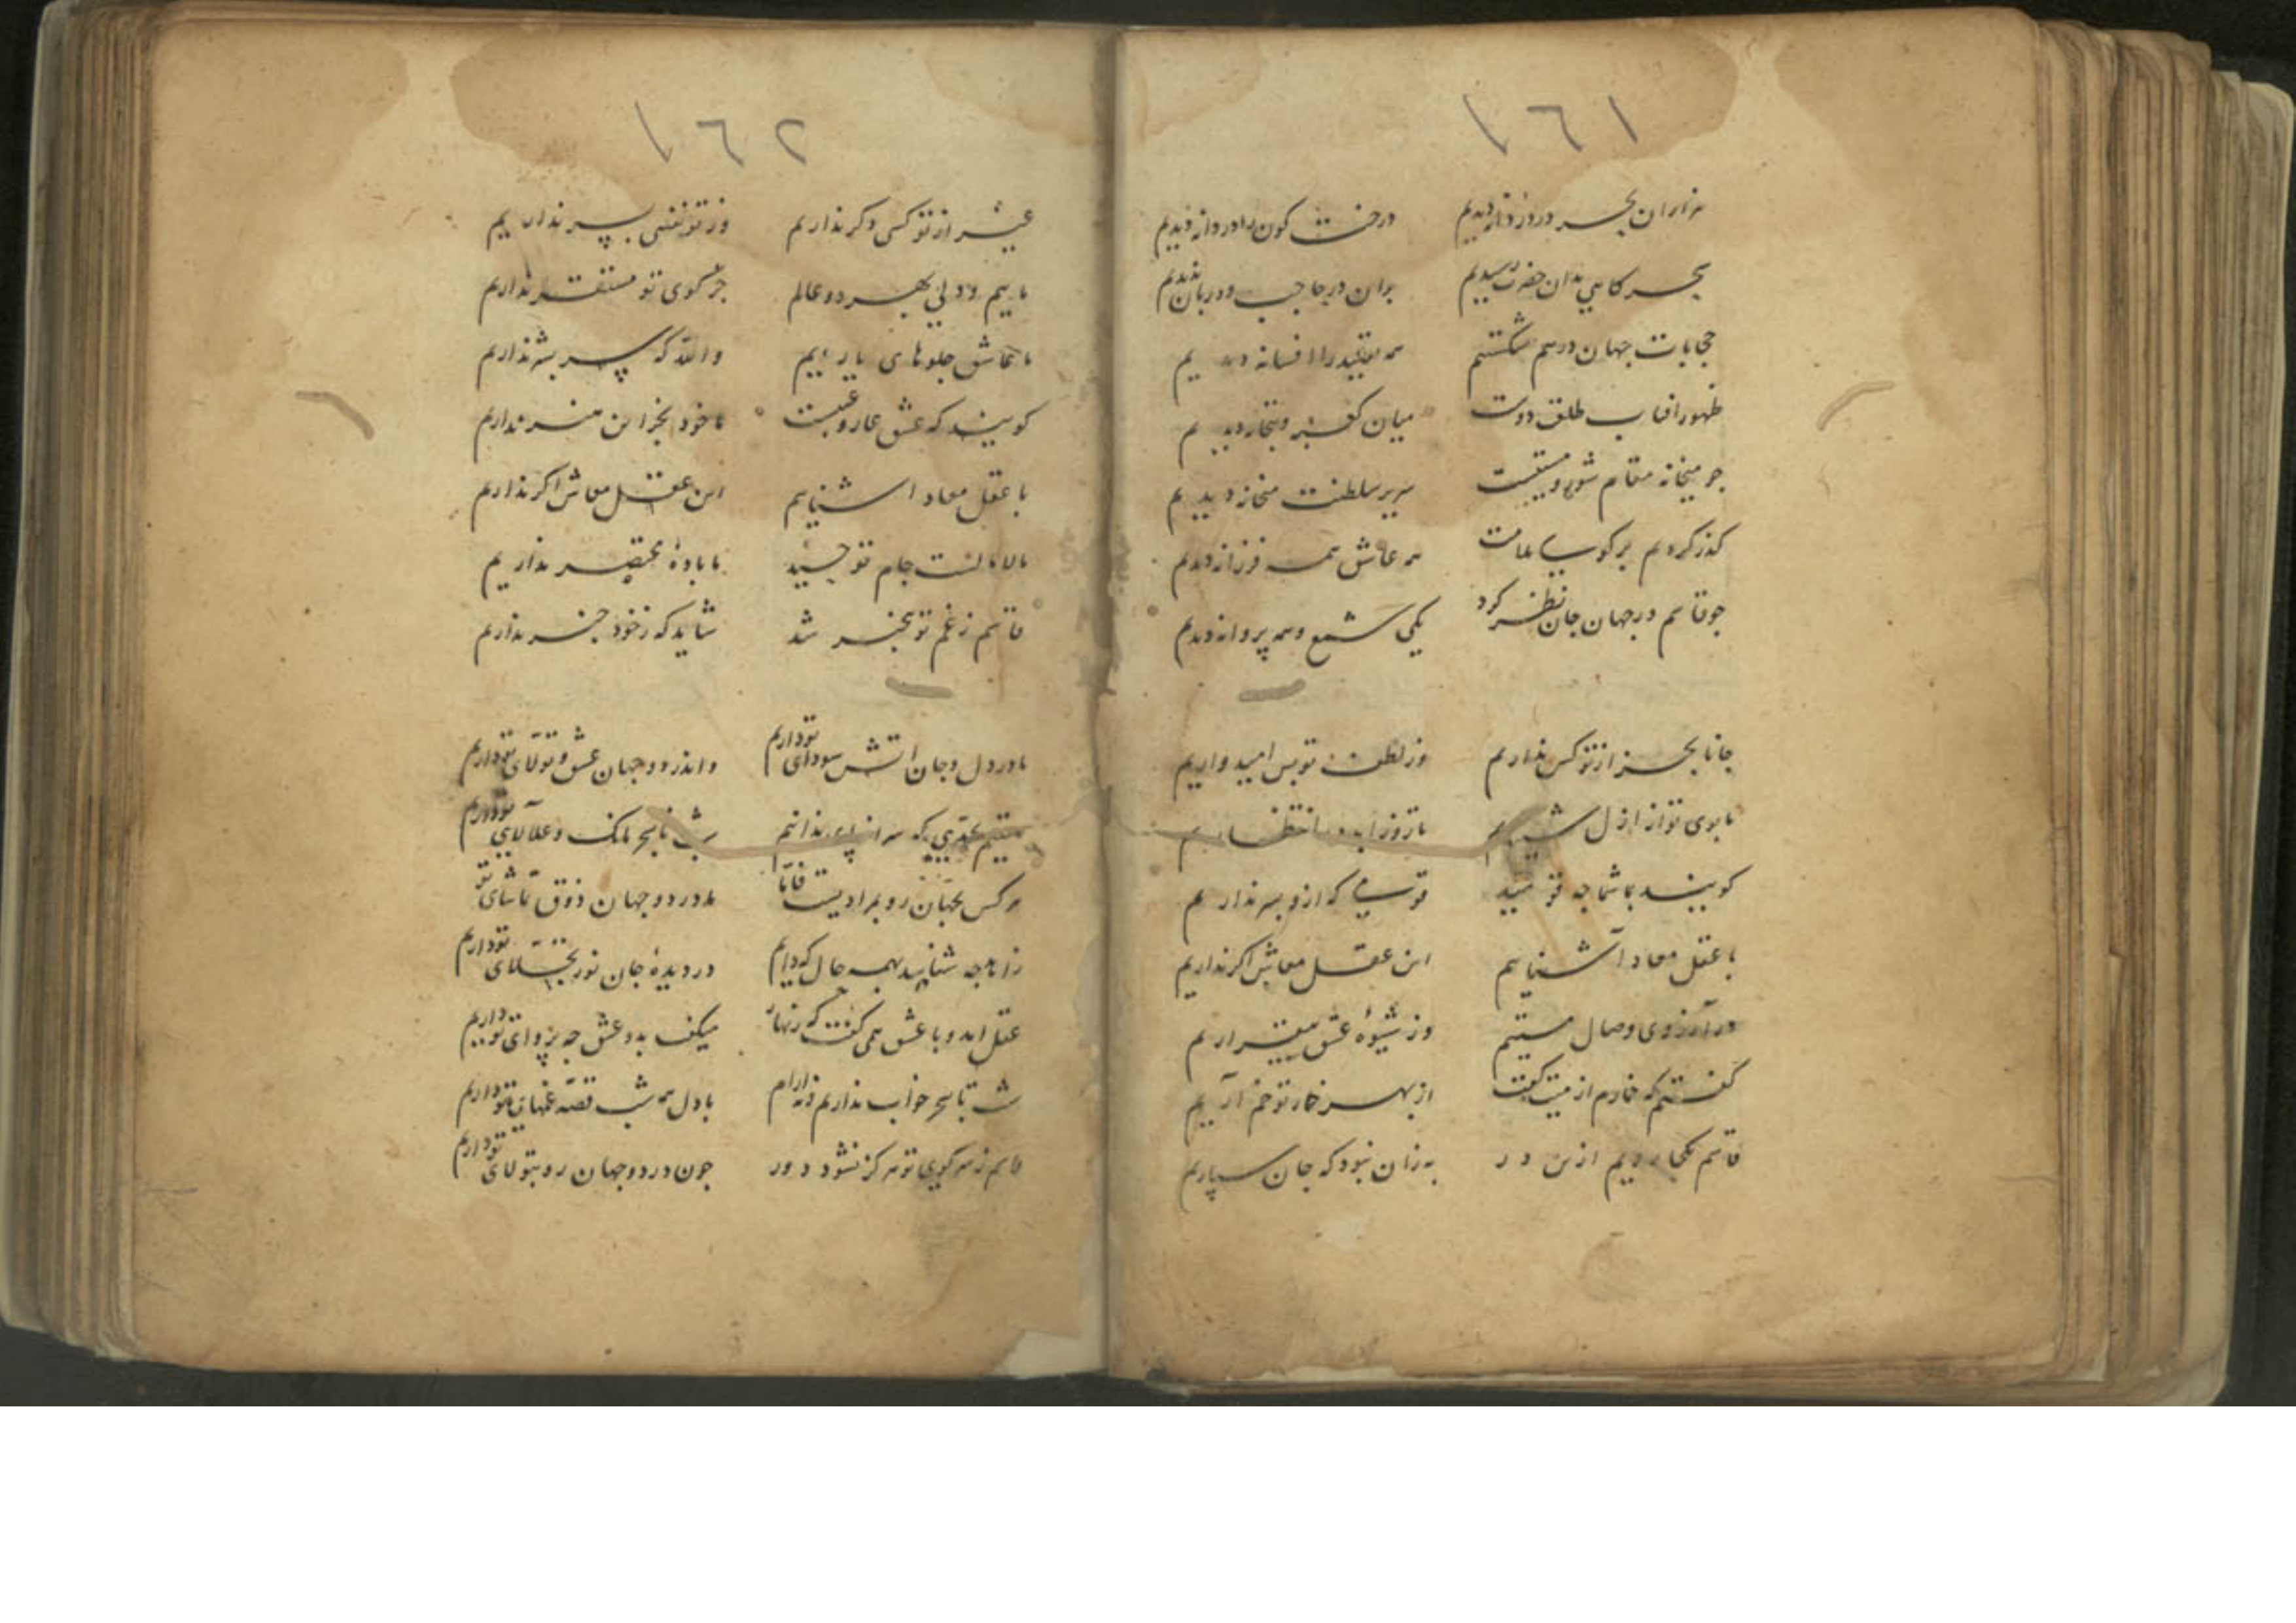 ١٦١
هزاران بحر در دردانه دیدیم درخت کون را در دانه دیدیم
سحرکاهی بدان حضرت رسیدیم بران در حاجب و دربان ندیدیم
حجابات جهان درهم شکستیم همه تقلید را افسانه دیدیم
ظهور افتاب طلعت دوست میان کعبه و بتخانه دیدیم
جو میخانه مقام شور و مستیست سریر سلطنت میخانه دیدیم
کذر کردیم بر کوی ملامت همه عاشق همه فرزانه دیدیم
جو قاسم در جهان جان نظر کرد یکی شمع و همه پروانه دیدیم
جانا بجز از تو کس نداریم وز لطف تو بس امیدواریم
با بوی تو از ازل تا روز ابد در انتظاریم
کویند بما شما جه قومید قومی که ازو سر نداریم
با عقل معاد آشناییم این عقل معاش اکر نداریم
در آرزوی وصال مستیم وز شیوهٔ عشق بیقراریم
کفتم که خمارم از میت کفت از بهر خمار تو خم آریم
قاسم بکجا رویم ازین در به زان نبود که جان سپاریم
١٦٢
غیر از تو کسی دکر نداریم وز تو نفسی بسر نداریم
ماییم و دلی بهر دو عالم جز کوی تو مستقر نداریم
ما عاشق جلوهای یاریم والله که سر بشر نداریم
کویند که عشق عار و عیبست ما خود بجز این هنر نداریم
با عقل معاد اشناییم این عقل معاش اکر نداریم
مالامالست جام توحید ما بادهٔ مختصر نداریم
قاسم ز غم تو بیخبر شد شاید که ز خود خبر نداریم
ما در دل و جان اتش سودای تو داریم واندر دو جهان عشق و تولای تو داریم
مستیم بحدی که سر از پای ندانیم شب تا بسحر بانک و علالای تو داریم
هر کس بجهان رو بمرادیست ما در دو جهان ذوق تماشای تو
زاهد جه شناسد بهمه حال که داریم در دیدهٔ جان نور تجلای تو داریم
عقل امد و با عشق همی کفت که زنهار میکف بدو عشق جه پروای تو داریم
شب تا بسحر خواب نداریم و نه ارام با دل همه شب قصه غمهای تو داریم
قاسم ز سر کوی تو هرکز نشود دور جون در دو جهان رو بتولای تو داریم